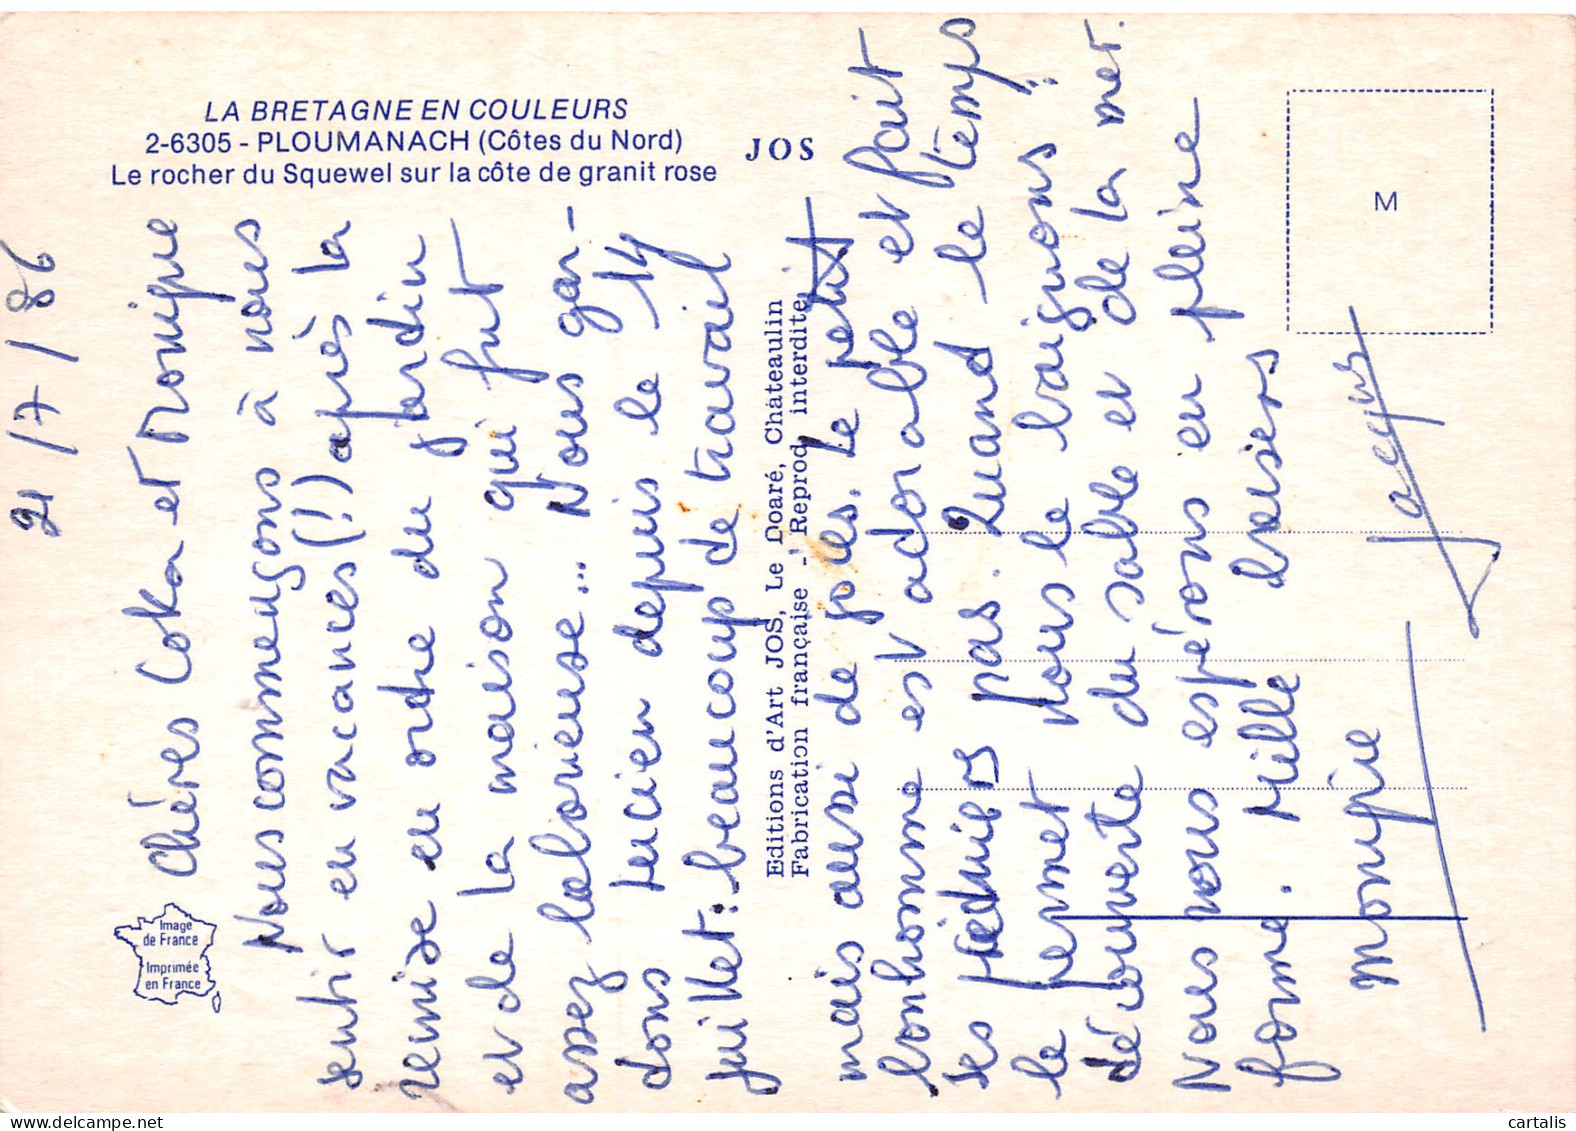 LA BRETAGNE EN COULEURS
2-6305 - PLOUMANACH (Côtes du Nord)
Le rocher du Squewel sur la côte de granit rose
JOS
M
Image
de France
Imprimée
en France
Editions d'Art JOS, Le Doaré, Châteaulin
Fabrication française - Reprod interdite
21/7/86
Chéres Coka et Monique
Nous commençons à nous
sentir en vacances (!) après la
remise en ordre du jardin
et de la maison qui fut
assez laborieuse... Nous gar-
dons Lucien depuis le 14
juillet: beaucoup de travail
mais aussi de joies. Le petit
bonhomme est adorable et fait
ses premiers pas. Quand le temps
le permet nous le baignons :
découverte du sable et de la mer.
Nous vous espérons en pleine
forme. Mille baisers
Jacques
cartalis
delcampe.net